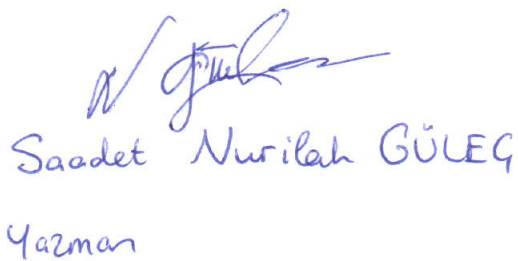 Saadet Nurilah GÜLEÇ
Yazman